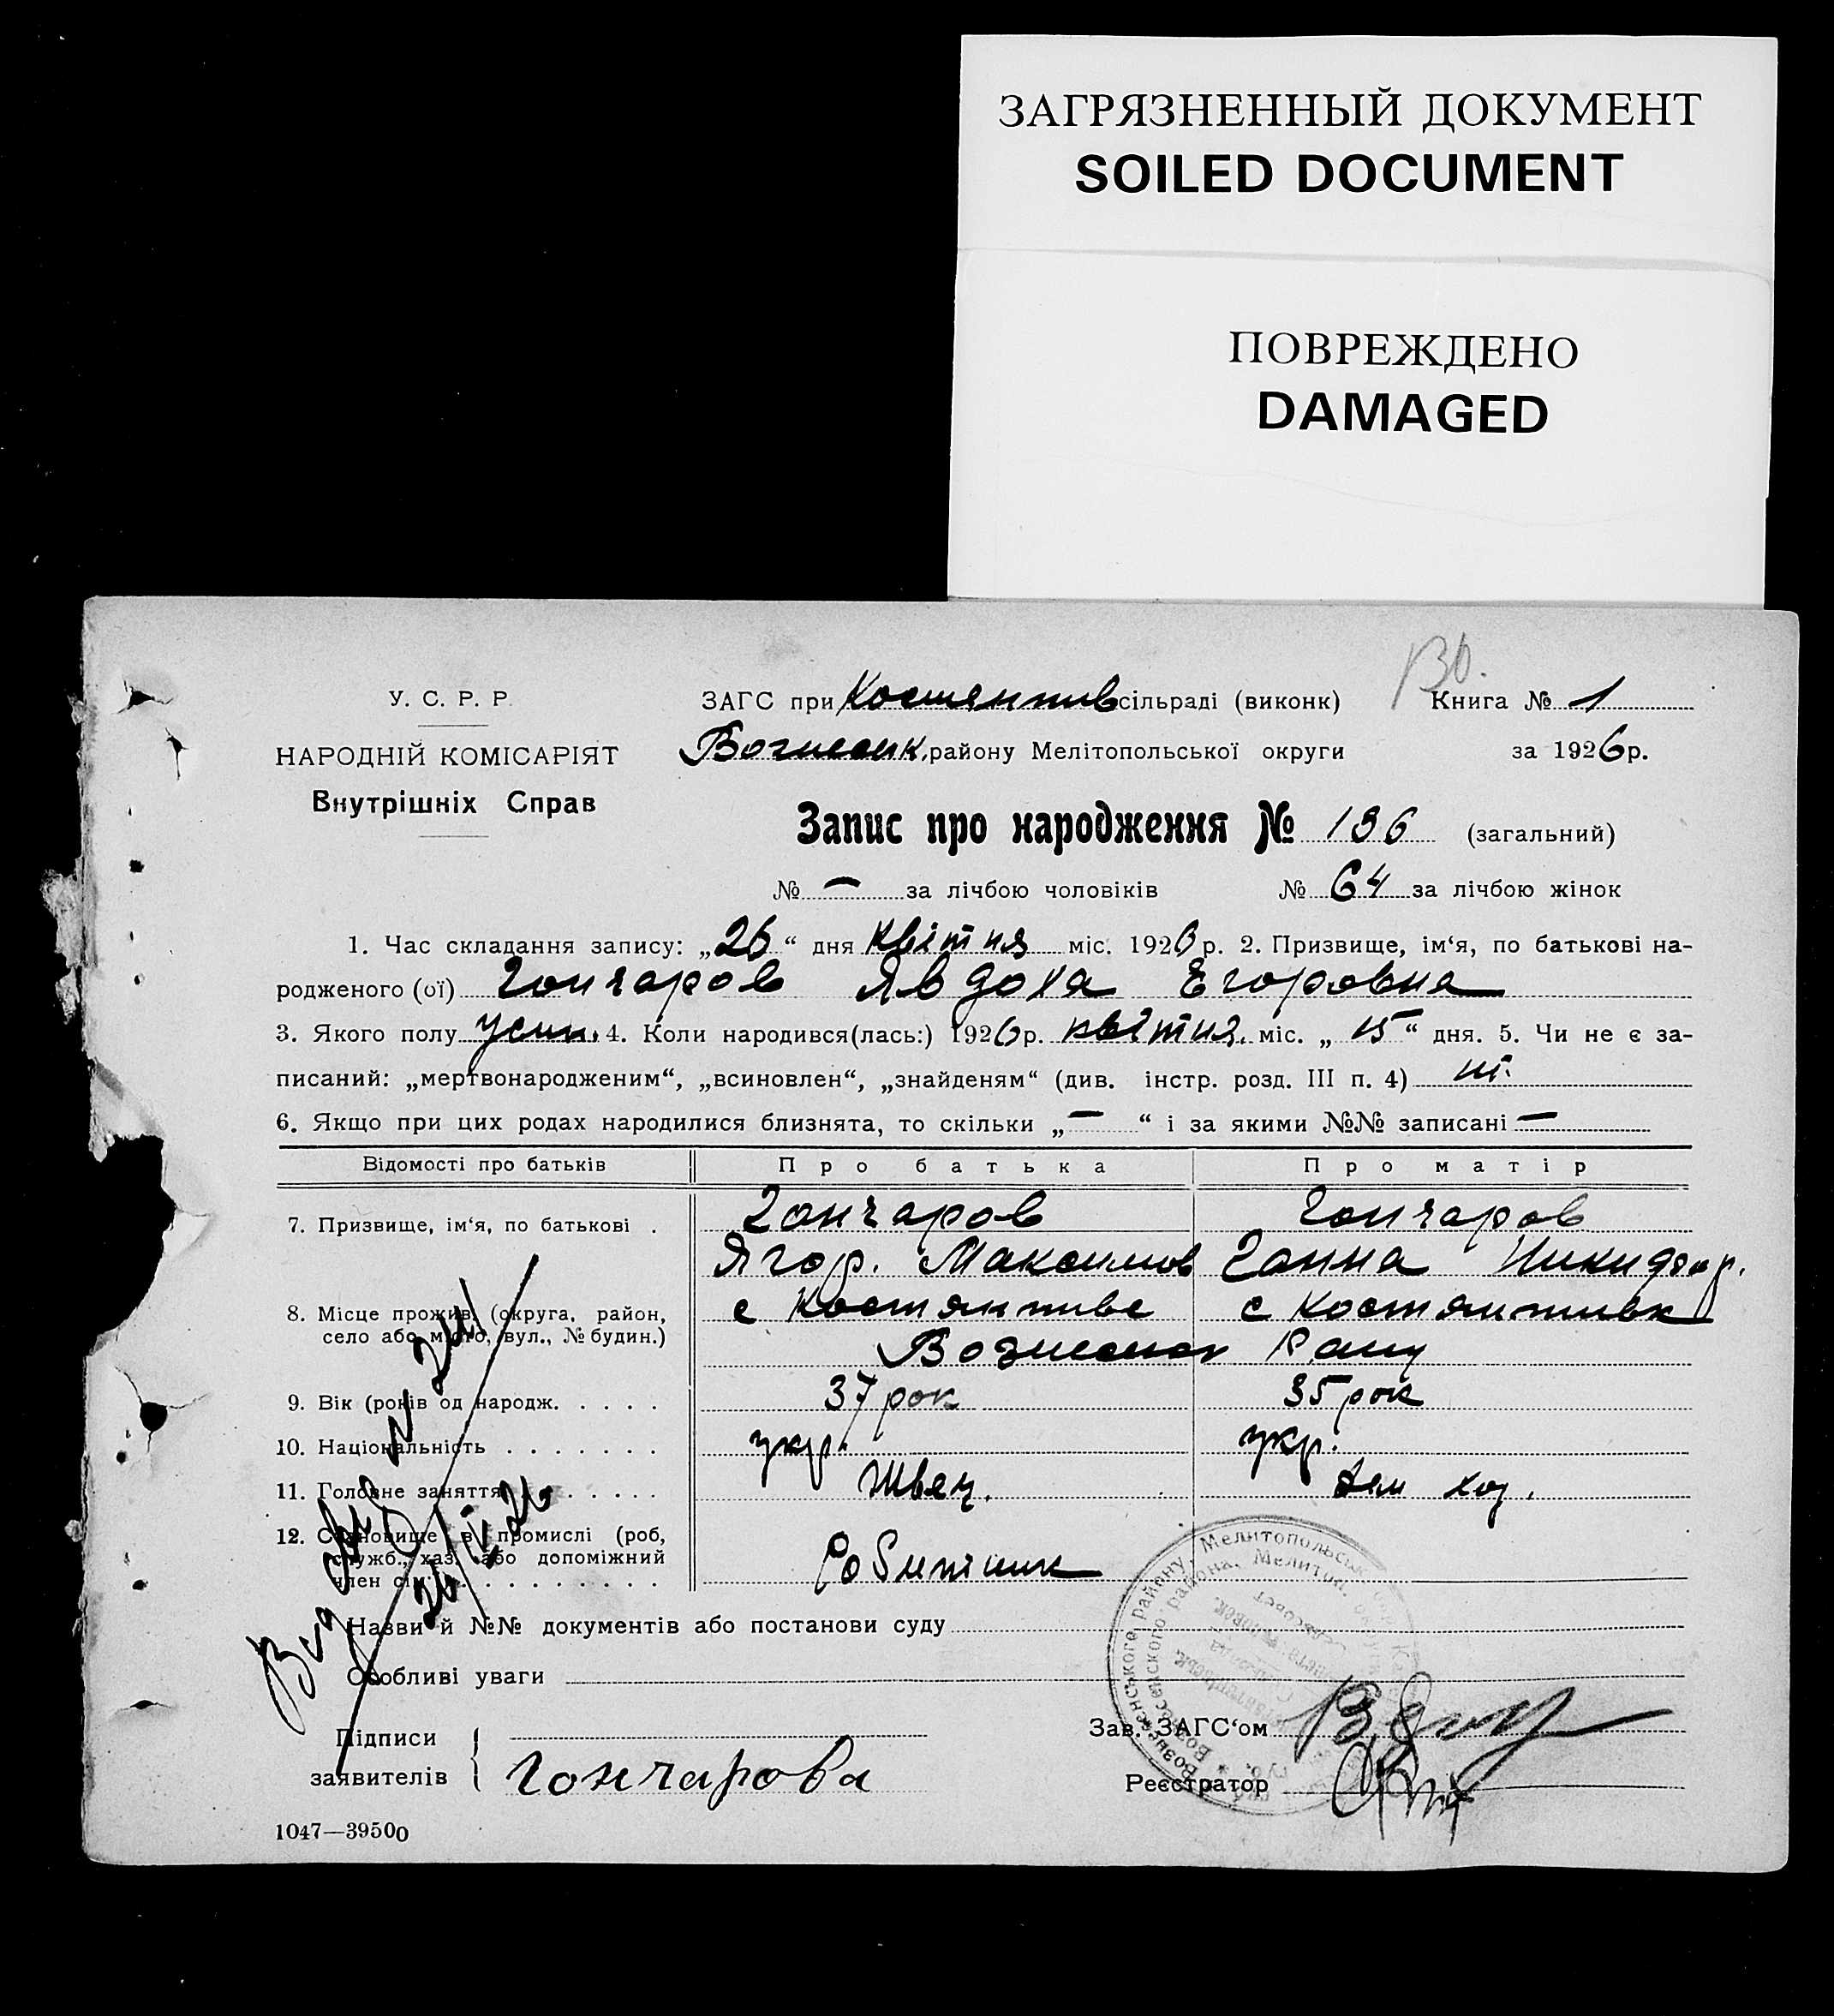 ЗАГРЯЗНЕННЫЙ ДОКУМЕНТ
SOILED DOCUMENT
ПОВРЕЖДЕНО
DAMAGED
130.
У. С. Р. Р.
НАРОДНІЙ КОМІСАРІЯТ
Внутрішніх Справ
ЗАГС при Костянтив сільраді (виконк) Книга № 1
Вознесенк. району Мелітопольської округи за 1926 р.
Запис про народження № 136 (загальний)
№ — за лічбою чоловіків № 64 за лічбою жінок
1. Час складання запису: „26“ дня квітня міс. 1926 р. 2. Призвище, ім‘я, по батькові на-
родженого (ої) Гончаров Явдоха Егоровна
3. Якого полу 4. Коли народився(лась:) 1926 р. квітня міс. „15“ дня. 5. Чи не є за-
писаний: „мертвонародженим“, „всиновлен“, „знайденям“ (див. інстр. розд. III п. 4) ні.
6. Якщо при цих родах народилися близнята, то скільки „—“ і за якими №№ записані —
Відомості про батьків Про батька Про матір
7. Призвище, ім‘я, по батькові . Гончаров Гончаров
Ягор. Максимов Ганна Никифор.
8. Місце прожив. (округа, район, с Костянтиве с Костянтивк
село або місто, вул., № будин.) Вознесенск Раиу
9. Вік (років од народж. . . . . 37 рок 35 рок
10. Національність . . . . . . . укр. укр.
11. Головне заняття . . . . . . . Швец. дом хоз.
12. Становище в промислі (роб,
служб., хаз. або допоміжний Робитник
член сім‘ї . . . . . . . . .
Видано 26/IV 26
Назви й №№ документів або постанови суду
Особливі уваги
Підписи Зав. ЗАГС‘ом
заявителів Гончарова Реєстратор
1047—39500